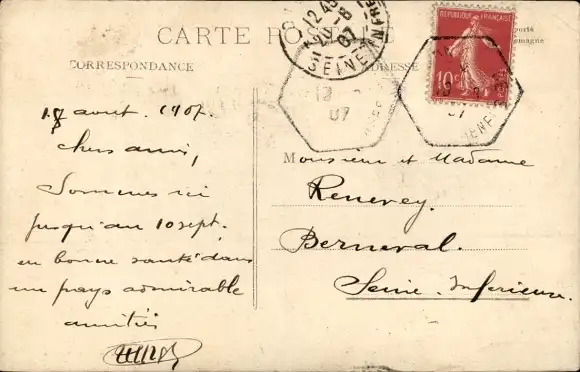 CARTE POSTALE
CORRESPONDANCE
ADRESSE
REPUBLIQUE FRANÇAISE
10c
12 45
SEINE INFRE
07
18 août 1907.
chers amis,
Sommes ici
jusqu'au 10 sept.
en bonne santé dans
un pays admirable
amitiés
Monsieur et Madame
Renevey.
Berneval.
Seine Inférieure.